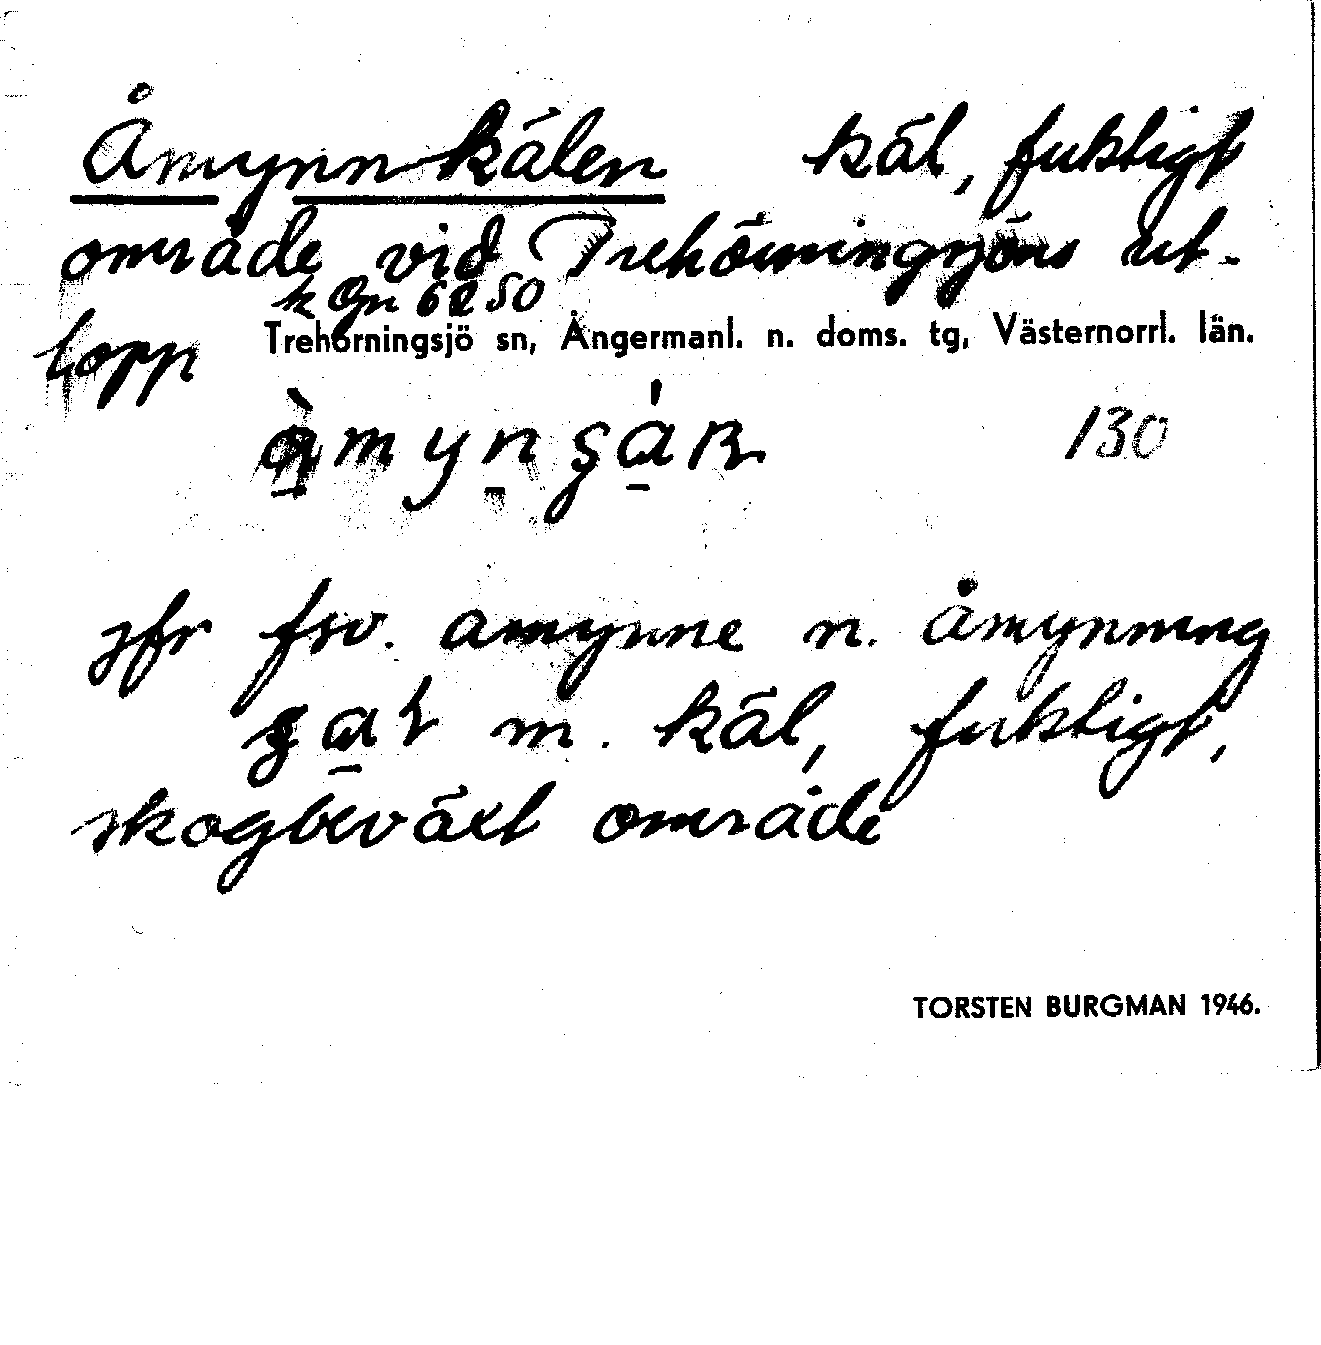 Åmynnkälen käl, fuktigt
område vid Trehörningsjöns ut-
lopp
Trehörningsjö sn, Ångermanl. n. doms. tg, Västernorrl. län.
130
jfr fsv. amynne n. åmynning
m. käl, fuktigt,
skogbeväxt område
TORSTEN BURGMAN 1946.